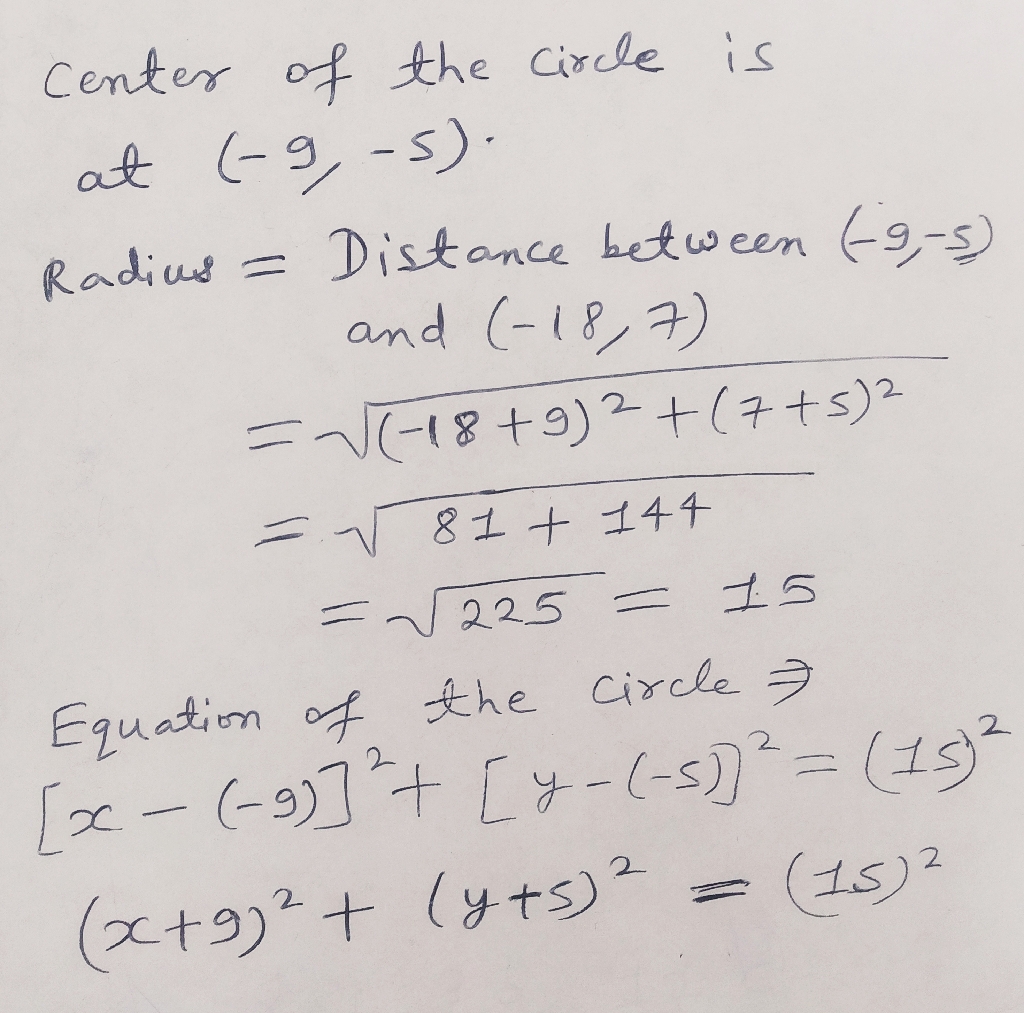 Center of the circle is
at (-9, -5).
Radius = Distance between (-9,-5)
and (-18, 7)
= √(-18+9)² + (7+5)²
= √81 + 144
= √225 = 15
Equation of the circle ⇒
[x - (-9)]² + [y - (-5)]² = (15)²
(x+9)² + (y+5)² = (15)²